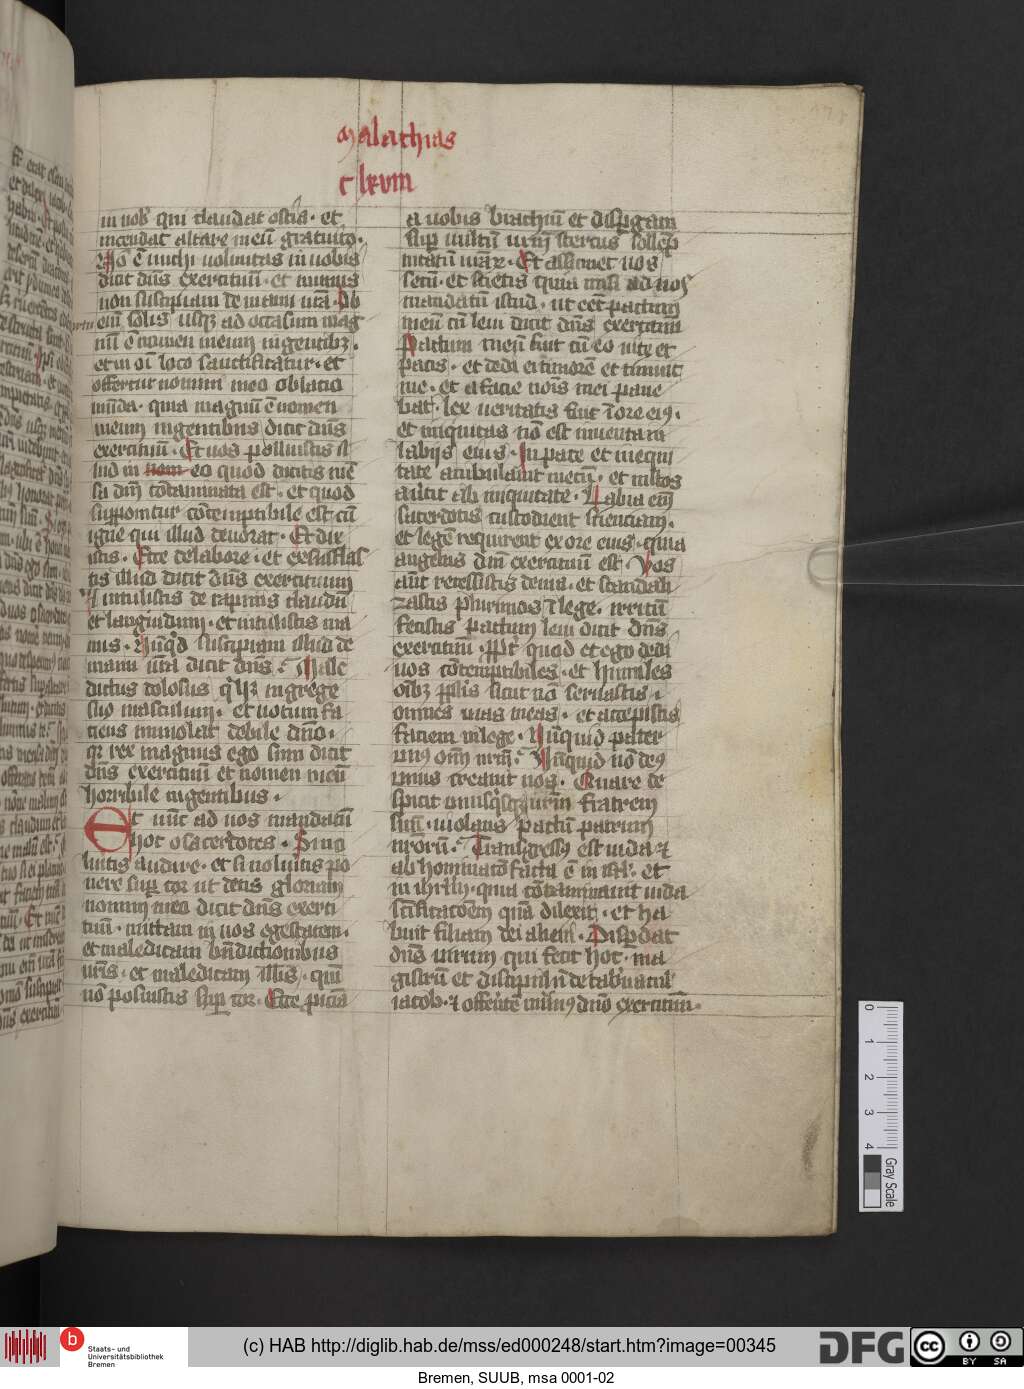 Malachias
c lxviii
in vob' qui claudat ostia · et
incendat altare meū gratuito ·
Nō ē michi voluntas in vobis
dicit dn̄s exercituū · et munus
non suscipiam de manu vr̄a · Ab
ortu
eni solis usq; ad occasum mag
nū ē nomen meum in gentib; ·
et in oī loco sanctificatur · et
offertur nomini meo oblatio
mūda · quia magnū ē nomen
meum in gentibus dicit dn̄s
exercituū · Et vos polluistis il
lud in nom eo quod dicitis mē
sa dn̄i cōtaminata est · et quod
supponitur cōtemptibile est cū
igne qui illud devorat · Et dix
istis · Ecce de labore · et exsufflas
tis illud dicit dn̄s exercituum
Et intulistis de rapinis claudū
et languidum · et intulistis mu
nus · Nūqd suscipiam illud de
manu vr̄a dicit dn̄s · Male
dictus dolosus q' h; in grege
suo masculum · et votum fa
ciens immolat debile dn̄o ·
q' rex magnus ego sum dicit
dn̄s exercituū et nomen meū
horribile in gentibus ·
Et nūc ad vos mandatū
hoc o sacerdotes · Si no
lūitis audire · et si nolūitis po
nere sup cor ut detis gloriam
nomini meo dicit dn̄s exerci
tuū · mittam in vos egestatem ·
et maledicam bn̄dictionibus
vr̄is · et maledicam illis · qm̄
nō posuistis sup cor · Ecce p̄iciā
a vobis brachiū et disp̄gam
sup vultū vr̄m stercus sollēp
nitatū vr̄ar · Et assumet vos
secū · et scietis quia misi ad vos
mandatū istud · ut eēt pactum
meū cū levi dicit dn̄s exercituū
Pactum meū fuit cū eo vite et
pacis · et dedi ei timorē et timuit
me · et a facie nois mei pave
bat · lex veritatis fuit ī ore ei9 ·
et iniquitas nō est inventa in
labijs eius · In pace et in equi
tate ambulavit mecū · et multos
av̄tit ab iniquitate · Labia em̄
sacerdotis custodient scienciam ·
et legē requirent ex ore eius · quia
angelus dn̄i exercituū est · Vos
aūt recessistis de via · et scandali
zastis plurimos ī lege · irritū
fecistis pactum levi dicit dn̄s
exercituū · ppt' quod et ego dedi
vos cōtemptibiles · et humiles
oib; pplis sicut nō servastis ·
omnes vias meas · et accepistis
faciem in lege · Nūquid pater
un9 om̄ nr̄m · Nūquid nō de9
unus creavit nos · Quare de
spicit unusqsq' vr̄m fratrem
suū · violans pactū patrum
nr̄orū · Transgress9 est iuda ⁊
abhominatō facta ē in isrl' · et
in ihrlm · quia cōtaminavit iuda
sc̄ificatoēm quā dilexit · et ha
buit filiam dei alieni · Disp̄dat
dn̄s virum qui fecit hoc · ma
gistrū et discipulū de tab'nacul'
iacob · ⁊ offerētē mun9 dn̄o exercituū ·
0
1
2
3
4
Gray Scale
b
Staats- und
Universitätsbibliothek
Bremen
(c) HAB http://diglib.hab.de/mss/ed000248/start.htm?image=00345
DFG
cc
BY SA
Bremen, SUUB, msa 0001-02